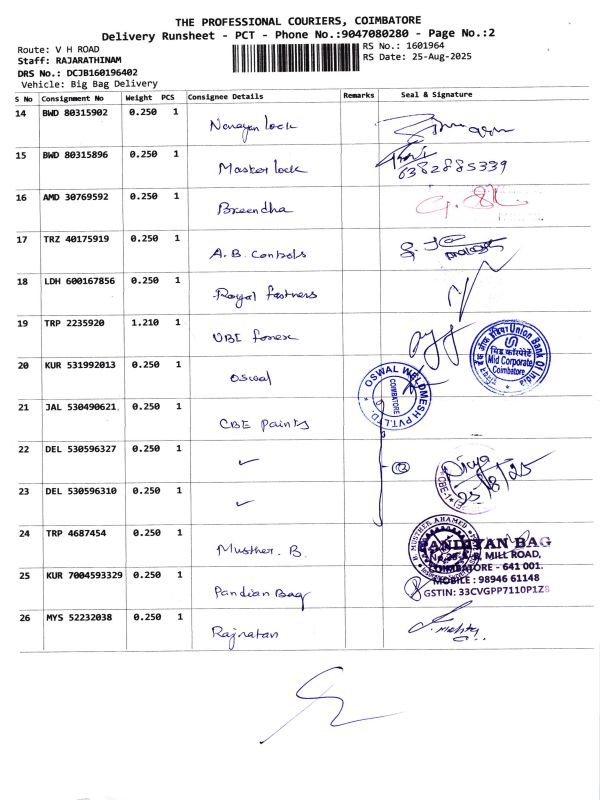 THE PROFESSIONAL COURIERS, COIMBATORE
Delivery Runsheet - PCT - Phone No.:9047080280 - Page No.:2
Route: V H ROAD
RS No.: 1601964
Staff: RAJARATHINAM
RS Date: 25-Aug-2025
DRS No.: DCJB160196402
Vehicle: Big Bag Delivery
S No Consignment No Weight PCS Consignee Details Remarks Seal & Signature
14 BWD 80315902 0.250 1 Narayan lock
15 BWD 80315896 0.250 1 Master lock 6382885339
16 AMD 30769592 0.250 1 Breendha
17 TRZ 40175919 0.250 1 A.B. Controls
18 LDH 600167856 0.250 1 Royal fastners
19 TRP 2235920 1.210 1 UBI forex
Union Bank Of India
Mid Corporate
Coimbatore
20 KUR 531992013 0.250 1 Oswal
OSWAL WELDMESH PVT.LTD.
COIMBATORE
21 JAL 530490621 0.250 1 CBE Paints
22 DEL 530596327 0.250 1 ✓
Divya
25/8/25
CBE-1
23 DEL 530596310 0.250 1 ✓
24 TRP 4687454 0.250 1 Musther. B.
B. MUSTHER AHAMED
PANDIYAN BAG
MILL ROAD,
COIMBATORE - 641 001.
25 KUR 7004593329 0.250 1 Pandian Bag
MOBILE : 98946 61148
GSTIN: 33CVGPP7110P1ZS
26 MYS 52232038 0.250 1 Rajratan